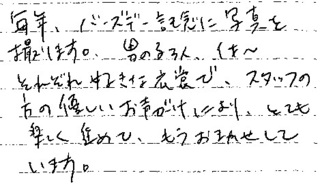 毎年、バースデー記念に写真を
撮ります。男の子3人、
それぞれ好きな衣装で、スタッフの
方の優しいお声がけにより、とても
楽しく進めて、もうおまかせして
います。